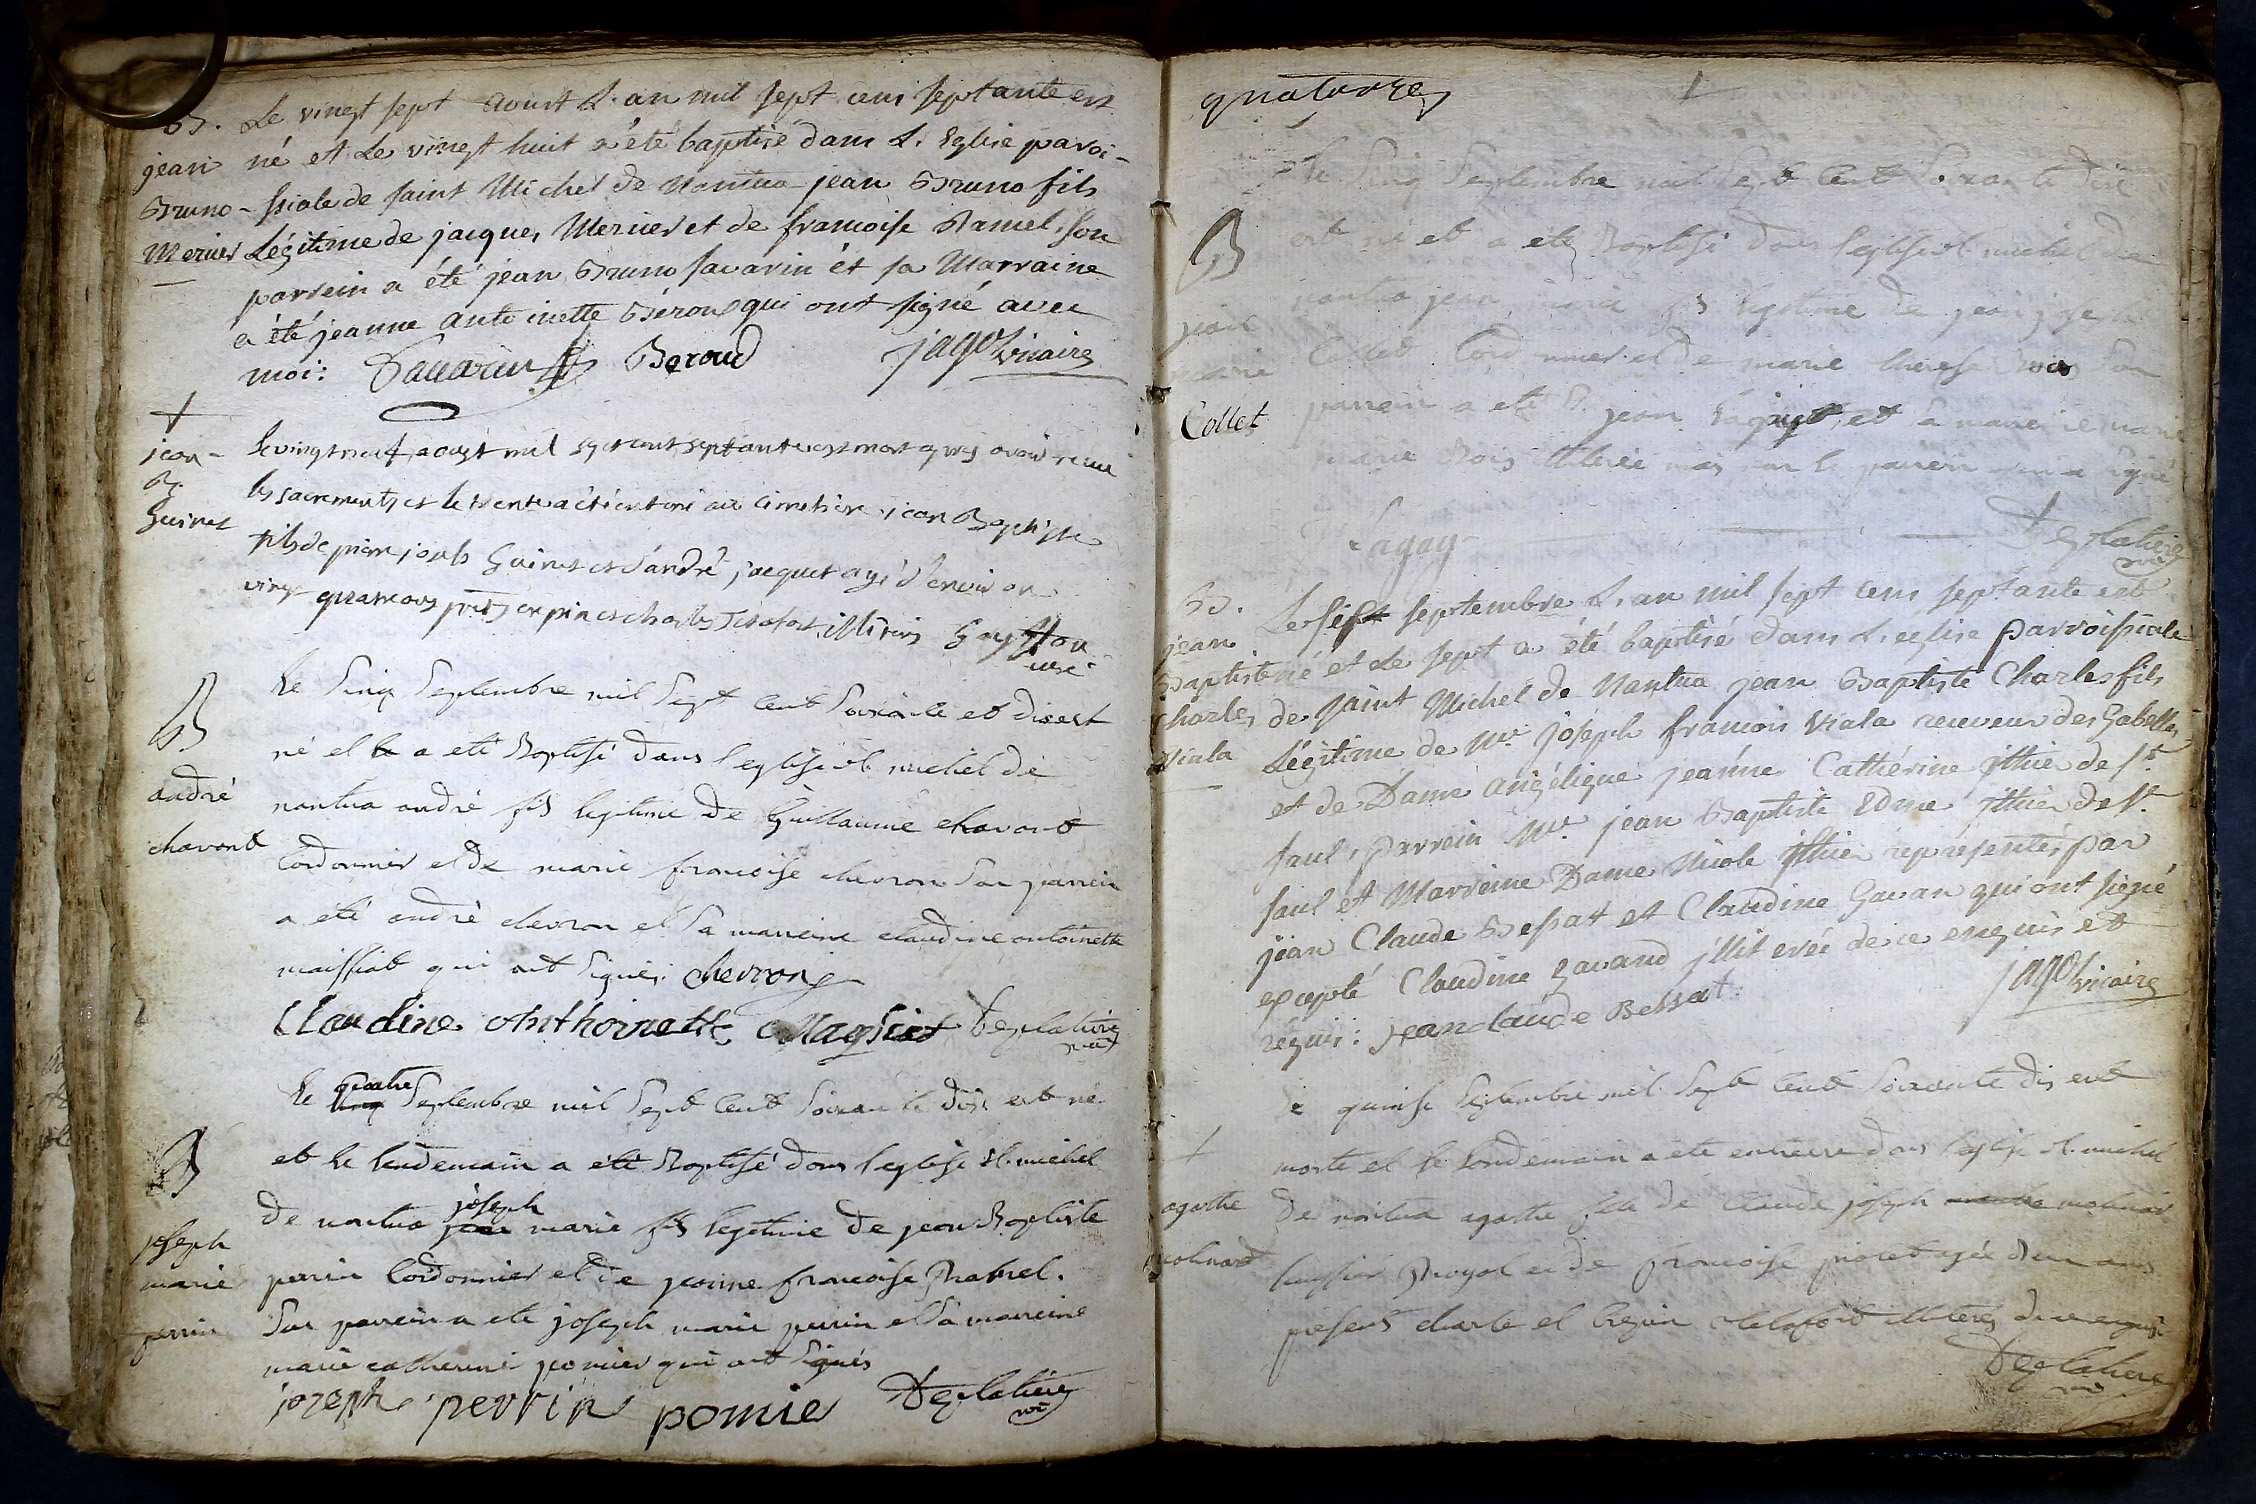 B. Le vingt sept aoust L'an mil sept cens septante est
jean né et Le vingt huit a été baptisé dans L'Eglise paroi-
Bruno - ssiale de saint Michel de Nantua jean Bruno fils
Mercier Légitime de jacques Mercier et de francoise Ramel, son
parrein a été jean Bruno savarin et sa Marraine
a été jeanne antoinette Béroud qui ont signé avec
moi: Savarin Beroud jago Vicaire
+
jean - le vingt neuf aoust mil sept cent septante est mort apres avoir recue
B. les sacrements et le trente a été enterré au cimetiere jean Baptiste
Guinet fils de pierre joseph Guinet et d'andré jacquet agé d'environ
vingt quatre ans en presence illiteres
B
Le sinq septembre mil sept cent soixante et dix est
né et le a eté Baptisé dans l'eglise st. michel de
andré nantua andré fils legitime de Guillaume chavant
chavant Cordonnier et de marie francoise chevron son parrein
a été andré chevron et sa mareine claudine antoinette
maissiat qui ont signés: chevron
Claudine Anthoinette Maysiat Deglatiere vic
quatre
Le sinq septembre mil sept cent soixante dix est né
B et le lendemain a eté Baptisé dans l'eglise st. michel
joseph
de nantua jean marie fils legitime de jean Baptiste
joseph
marie perrin Cordonnier et de jeanne francoise
perrin Son parrein a eté joseph marie perrin et sa mareine
marie catherine pomier qui ont signés
jozeph perrin pomie Deglatiere vic
quatorze
Le sinq septembre mil sept cent soixante dix
B est né et a eté Baptisé dans l'eglise st. michel de
jean nantua jean marie fils legitime de jean
marie Collet Cordonnier et de marie therese son
Collet parrein a eté S. jean et sa mareine marie
marie Bois illiterée mais le parrein a signé
Deglatiere vic
B. Le six septembre L'an mil sept cens septante est
jean
Baptiste né et le sept a été baptisé dans L'eglise parroissiale
Charles de saint Michel de Nantua jean Baptiste Charles fils
Viala Légitime de Mr. joseph francois Viala receveur des Gabelles,
et de Dame angélique jeanne Cathérine ithier de st.
saul, parrein Mr. jean Baptiste Edme ithier de st.
saul et Marreine Dame Nicole ithier représentés par
jean Claude Bessat et Claudine Gavan qui ont signé
excepté Claudine Gavand jllit erée de ce enquis et
réquis: jean claude Bessat jago Vicaire
Le quinse septembre mil sept cent soixante dix est
+ morte et le lendemain a eté enterrée dans l'eglise st. michel
agathe de nantua agathe fille de Claude joseph molinard
molinard huissier Royal et de francoise agée d'un ans
presents charle et illiterés de ce enquis
Deglatiere